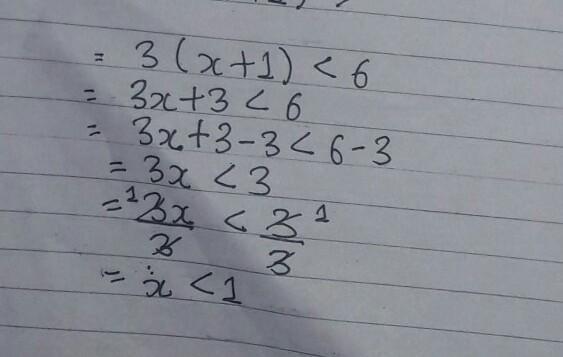 = 3 (x+1) < 6
= 3x+3 < 6
= 3x+3-3 < 6-3
= 3x < 3
= ¹3x/3 < 3¹/3
= x < 1